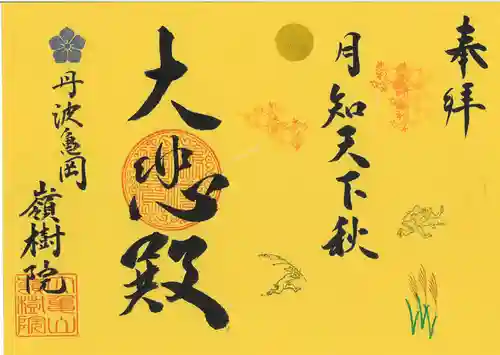 奉拝
月知天下秋
大悲殿
丹波亀岡
嶺樹院